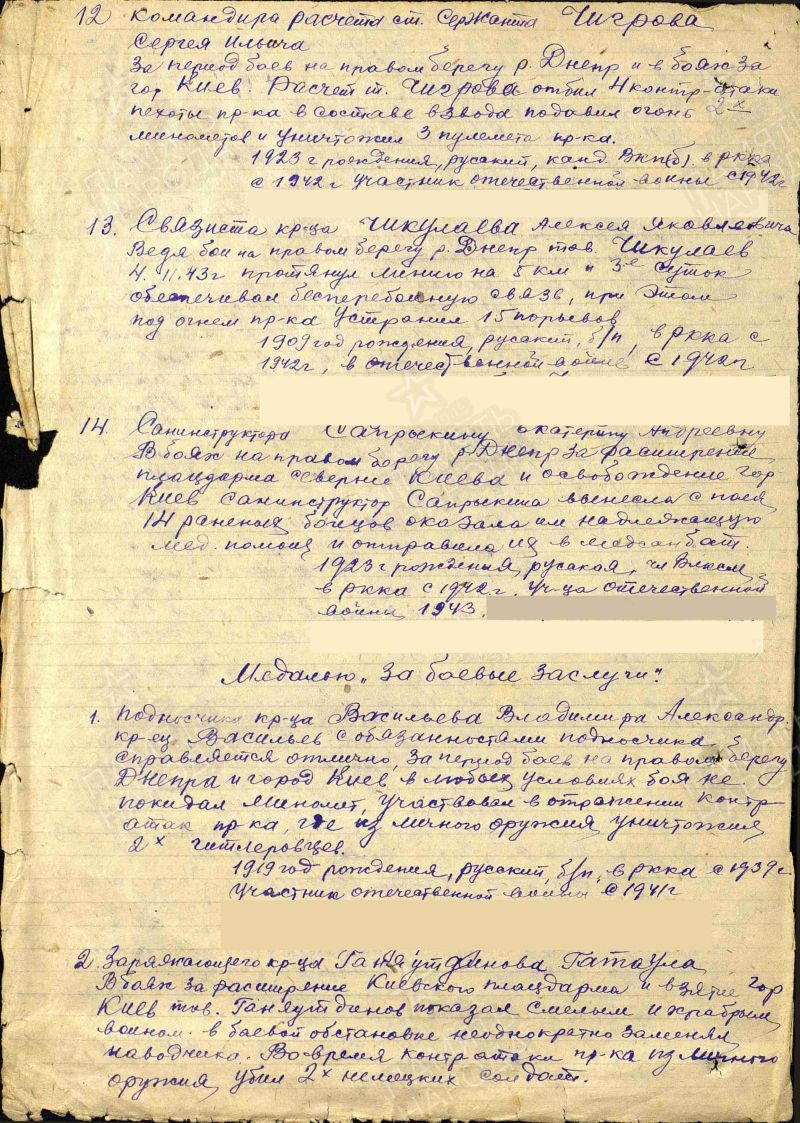 12 командира расчета ст. Сержанта Чигрова
Сергея Ильича
За период боев на правом берегу р. Днепр и в боях за
гор Киев. Расчет ст. Чигрова отбил 4 контр-атаки
пехоты пр-ка в составе взвода подавил огонь 2х
минометов и уничтожил 3 пулемета пр-ка.
1923 г рождения, русский, канд. ВКП(б). в РККА
с 1942 г участник отечественной войны с 1942 г
13. Связиста кр-ца Чикулаева Алексея Яковлевича
Ведя бои на правом берегу р. Днепр тов. Чикулаев
4.11.43г протянул линию на 5 км и 3е суток
обеспечивал бесперебойную связь, при этом
под огнем пр-ка устранил 15 порывов
1909 год рождения, русский, б/п, в РККА с
1942 г, в отечественной войне с 1942 г
14. Санинструктора Сапрыкину Екатерину Андреевну
В боях на правом берегу р. Днепр за расширение
плацдарма севернее Киева и освобождение гор
Киев санинструктор Сапрыкина вынесла с поля
14 раненых бойцов оказала им надлежащую
мед. помощь и отправила их в медсанбат.
1923 г рождения, русская, чл ВЛКСМ,
в РККА с 1942 г. уч-ца отечественной
войны 1943.
Медалью "За боевые заслуги".
1. Подносчика кр-ца Васильева Владимира Александр.
кр-ец Васильев с обязанностями подносчика
справляется отлично, за период боев на правом берегу
Днепра и город Киев в любых условиях боя не
покидал миномет, участвовал в отражении контр
атак пр-ка, где из личного оружия уничтожил
2х гитлеровцев.
1919 год рождения, русский, б/п, в РККА с 1939 г.
Участник отечественной войны с 1941 г
2. Заряжающего кр-ца Ганяутдинова Гатаула
В боях за расширение Киевского плацдарма и взятие гор
Киев тов. Ганяутдинов показал смелым и храбрым
воином. в боевой обстановке неоднократно заменял
наводчика. Во время контр атаки пр-ка из личного
оружия убил 2х немецких солдат.